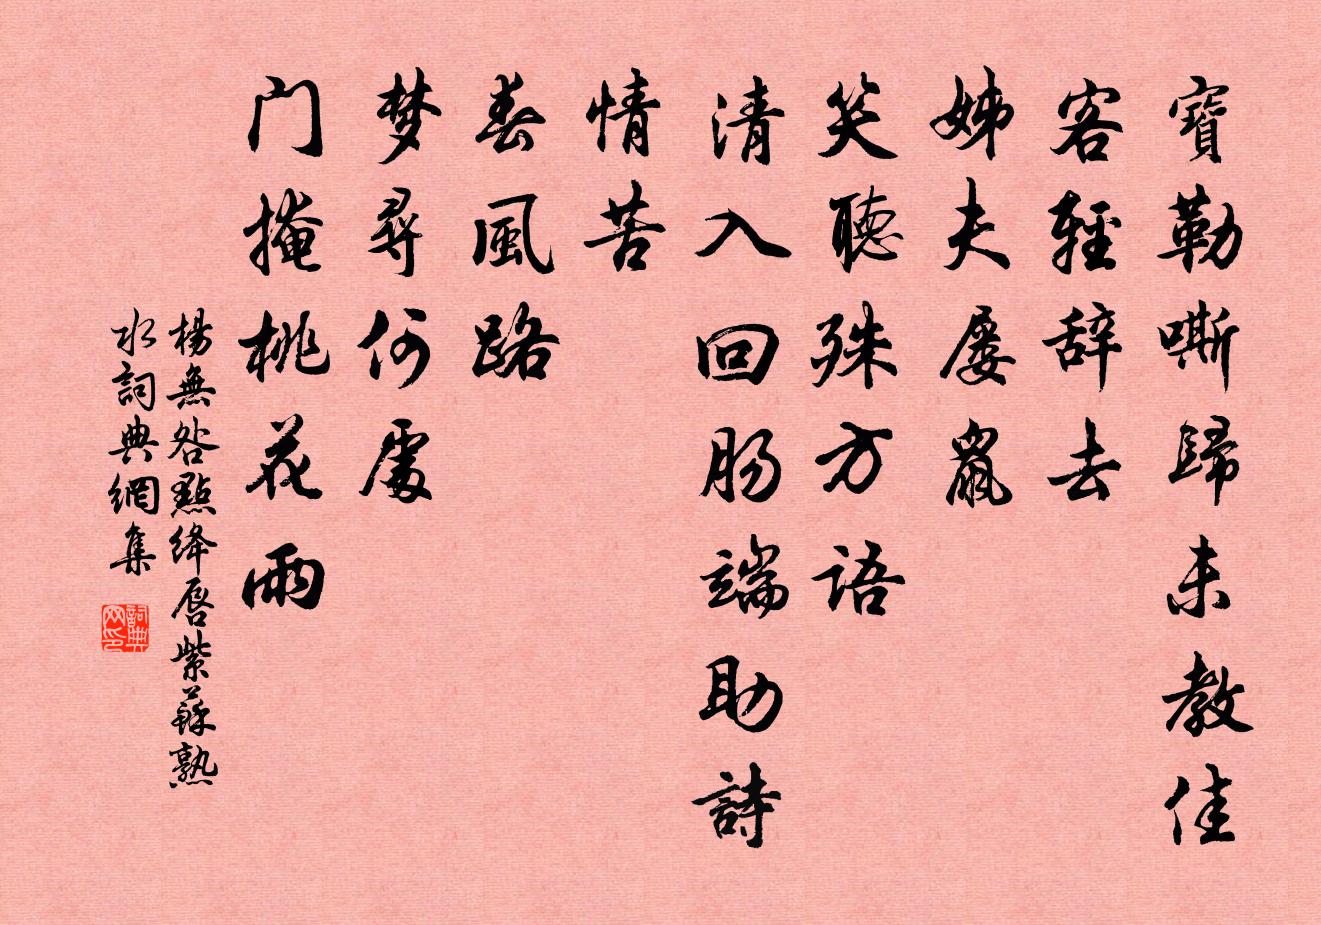 寶勒嘶歸未教佳
客輕辞去
姊夫屡鼠
笑聽殊方语
清入回肠端助詩
情苦
春風路
梦尋何處
门掩桃花雨
楊無咎點絳唇紫蘇熟
水詞典網集
詞典网印